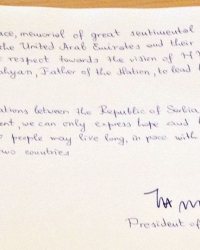 ace, memorial of great sentimental
the United Arab Emirates and their
t respect towards the vision of H H
ahyan, Father of the Nation, to lead
ations between the Republic of Serbia
ent, we can only express hope and
r people may live long, in pace with
two countries
President of